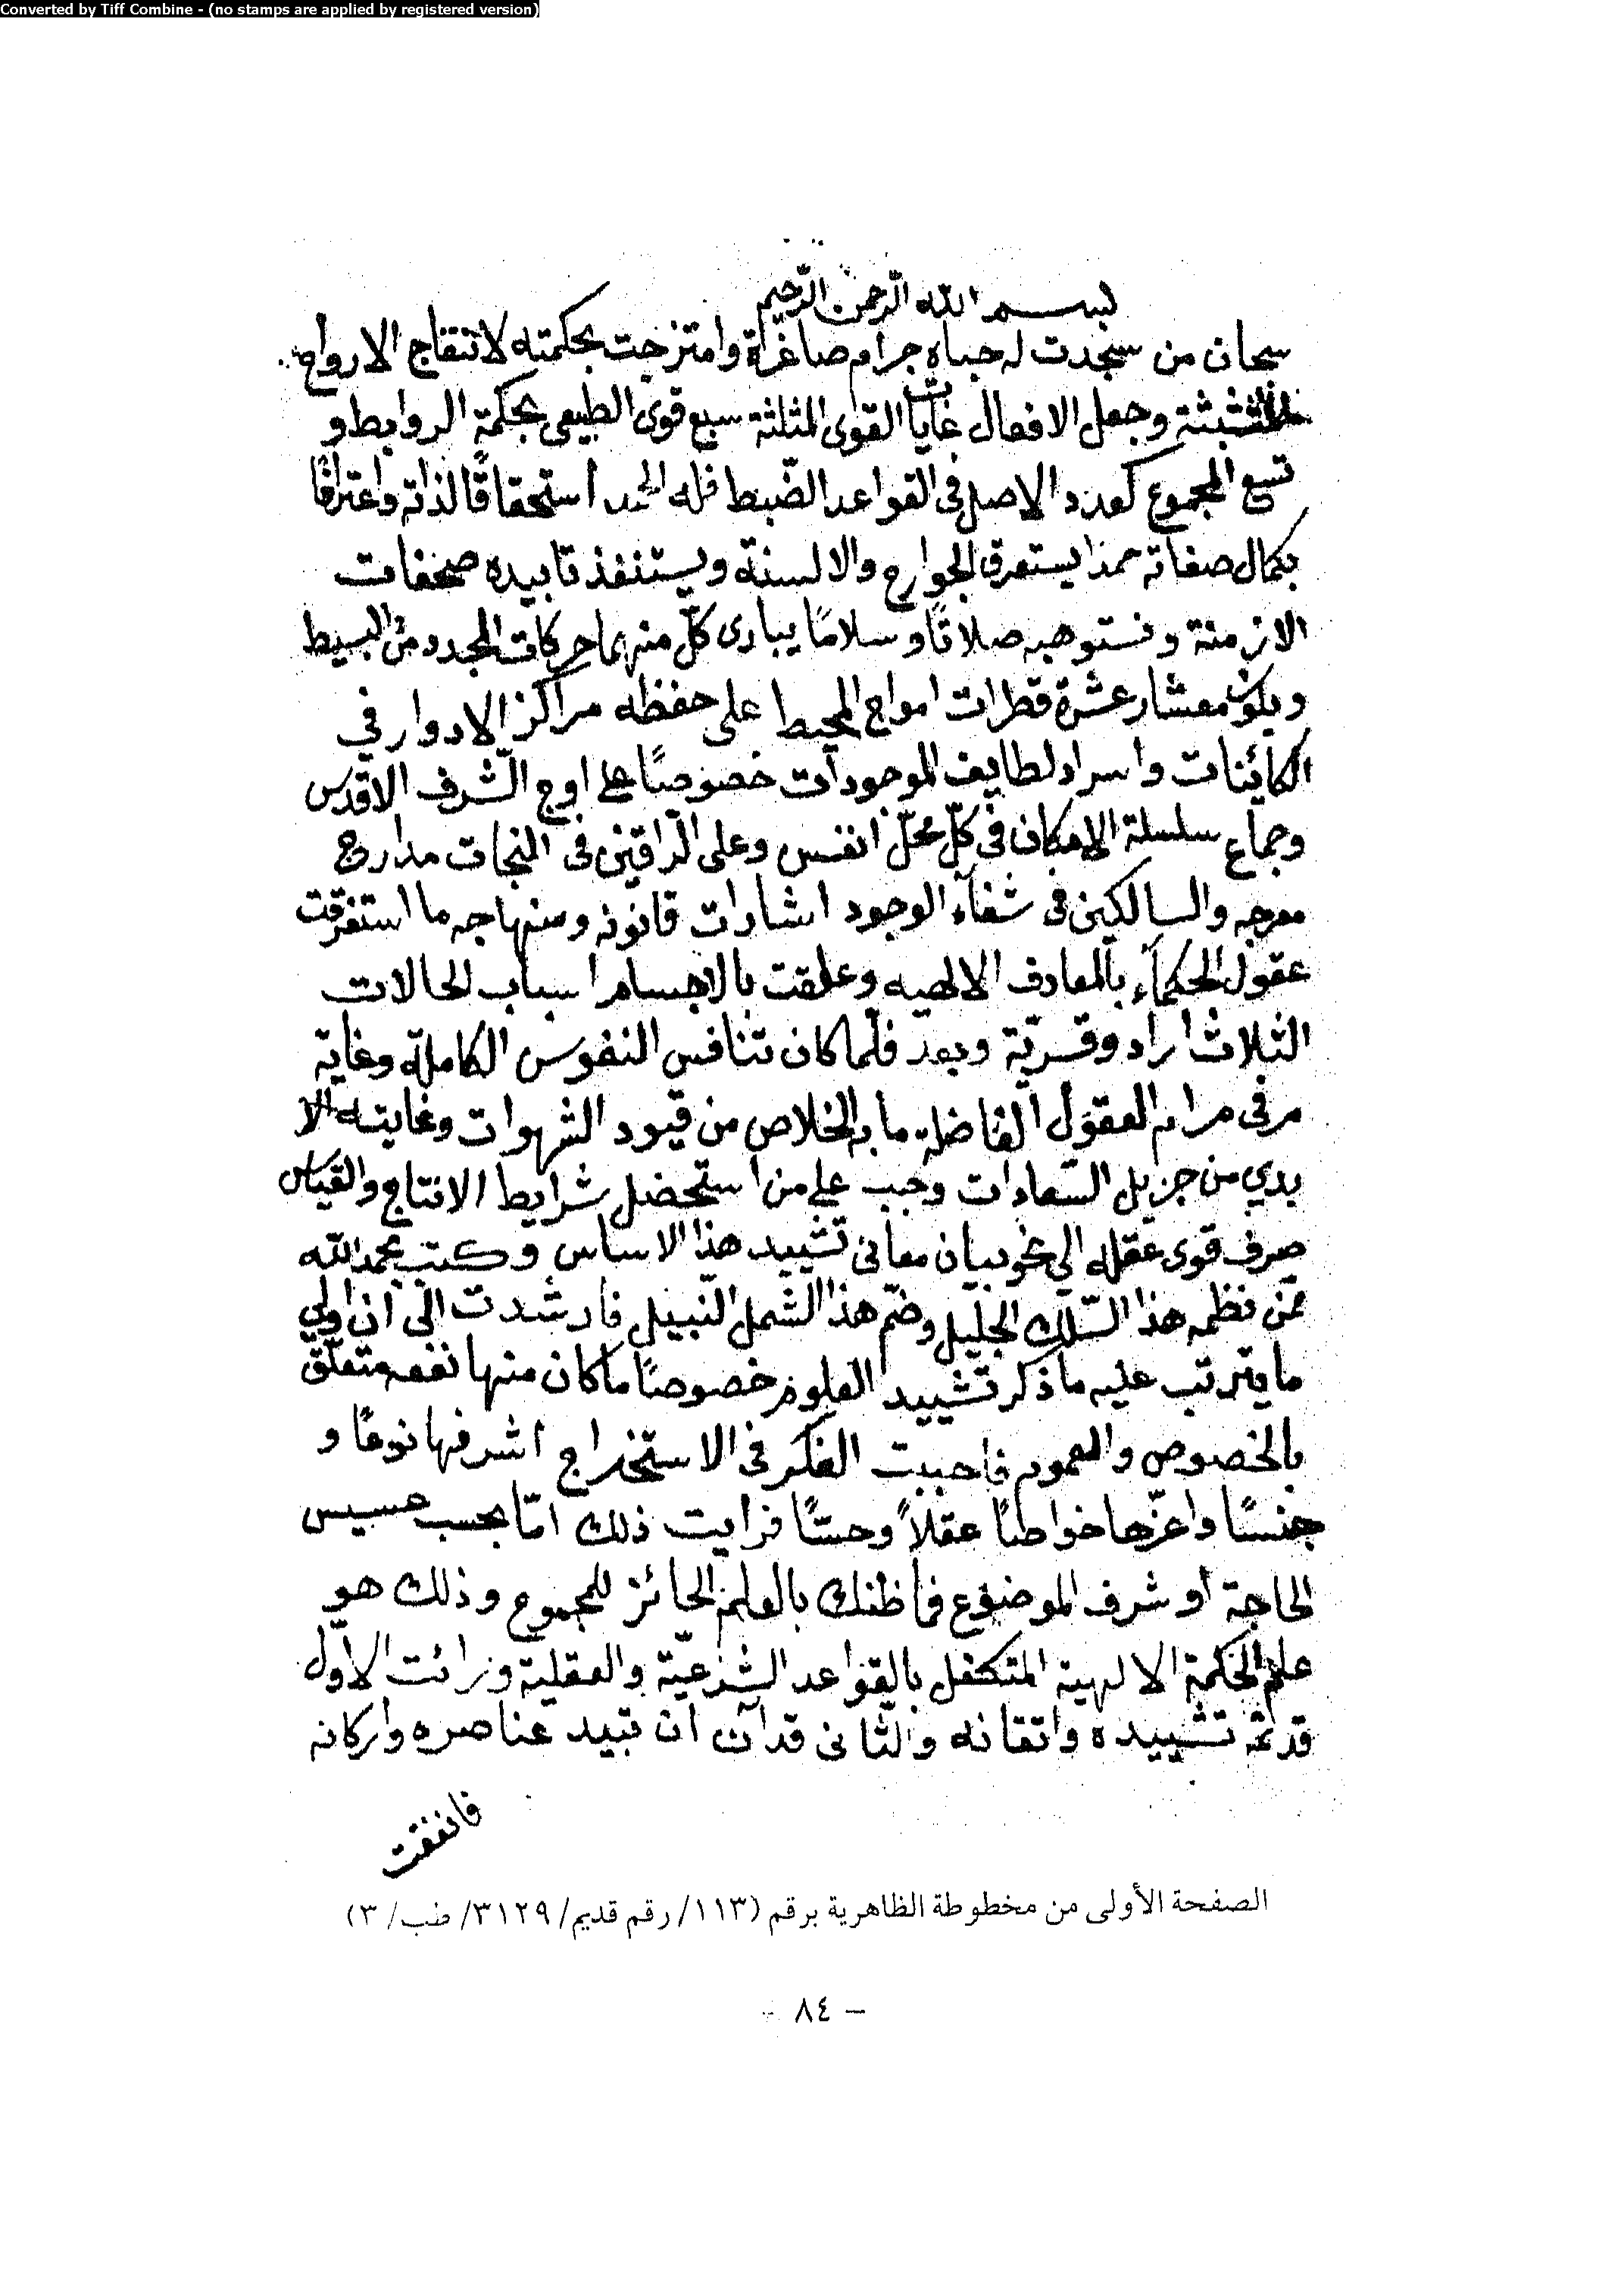 Converted by Tiff Combine - (no stamps are applied by registered version)
بسم الله الرحمن الرحيم
سبحان من سجدت له جباه جرام صاغراة وامتزجت بحكمته لانتقاج الارواح
وجعل الافعال غايات القوى المثلثة سبع قوى الطبيعى بحكمة الروابط و
تسع المجموع كعدد الاصل فى القواعد الضبط فله الحمد استحقاقًا لذاته واعترافًا
بكمال صفاته حمدا يستغرق الجوارح والالسنة ويستنفذ تابيده صحفات
الازمنة ونستوهبه صلاتًا وسلامًا يبارى كلّ منهما حركات المجدد من البسيط
ويكون معشار عشرة قطرات امواج المحيط على حفظه مراكز الادوار في
الكائنات واسرار لطايف الموجودات خصوصًا على اوج الشرف الاقدس
وجماع سلسلة الامكان فى كلّ محلّ انفس وعلى الراقين فى المنجات مدارج
معرجه والسالكين فى شفآء الوجود اشارات قانونه ومنهاجه ما استغرقت
عقول الحكمآء بالمعارف الالهيه وعلقت بالاجسام اسباب الحالات
الثلاث اراد وقسرية وبعد فلما كان تنافس النفوس الكاملة وغاية
مرقى مرام العقول الفاضلة ما به الخلاص من قيود الشهوات وغايته الا
بدي من جزيل السّعادات وجب على من استحضل شرايط الانتاج والقياس
صرف قوى عقله الي نحو بيان معانى تشييد هذا الاساس وكنت بحمد الله
ممّن نظمه هذا السّلك الجليل وضم هذا الشمل النّبيل فارشدت الى ان اولي
ما يترتب عليه ما ذكر تشييد العلوم خصوصًا ما كان منها نفعه متعلّق
بالخصوص والعموم فاحببت الفكر فى الاستخراج اشرفها نوعًا و
جنسًا واعزّها خواطبًا عقلاً وحسًّا فرايت ذلك امّا بحسب حسيس
الحاجة او شرف الموضوع فما ظنك بالعلم الحائز للمجموع وذلك هو
علم الحكمة الالهية المتكفل بالقواعد الشرعيّة والعقلية ورائت الاول
قد تمّ تشييده واتقانه والثانى قد آن ان تبيد عناصره واركانه
فانفقت
الصفحة الأولى من مخطوطة الظاهرية برقم (١١٣/ رقم قديم/ ٣١٢٩/ طب/ ٣)
- ٨٤ -